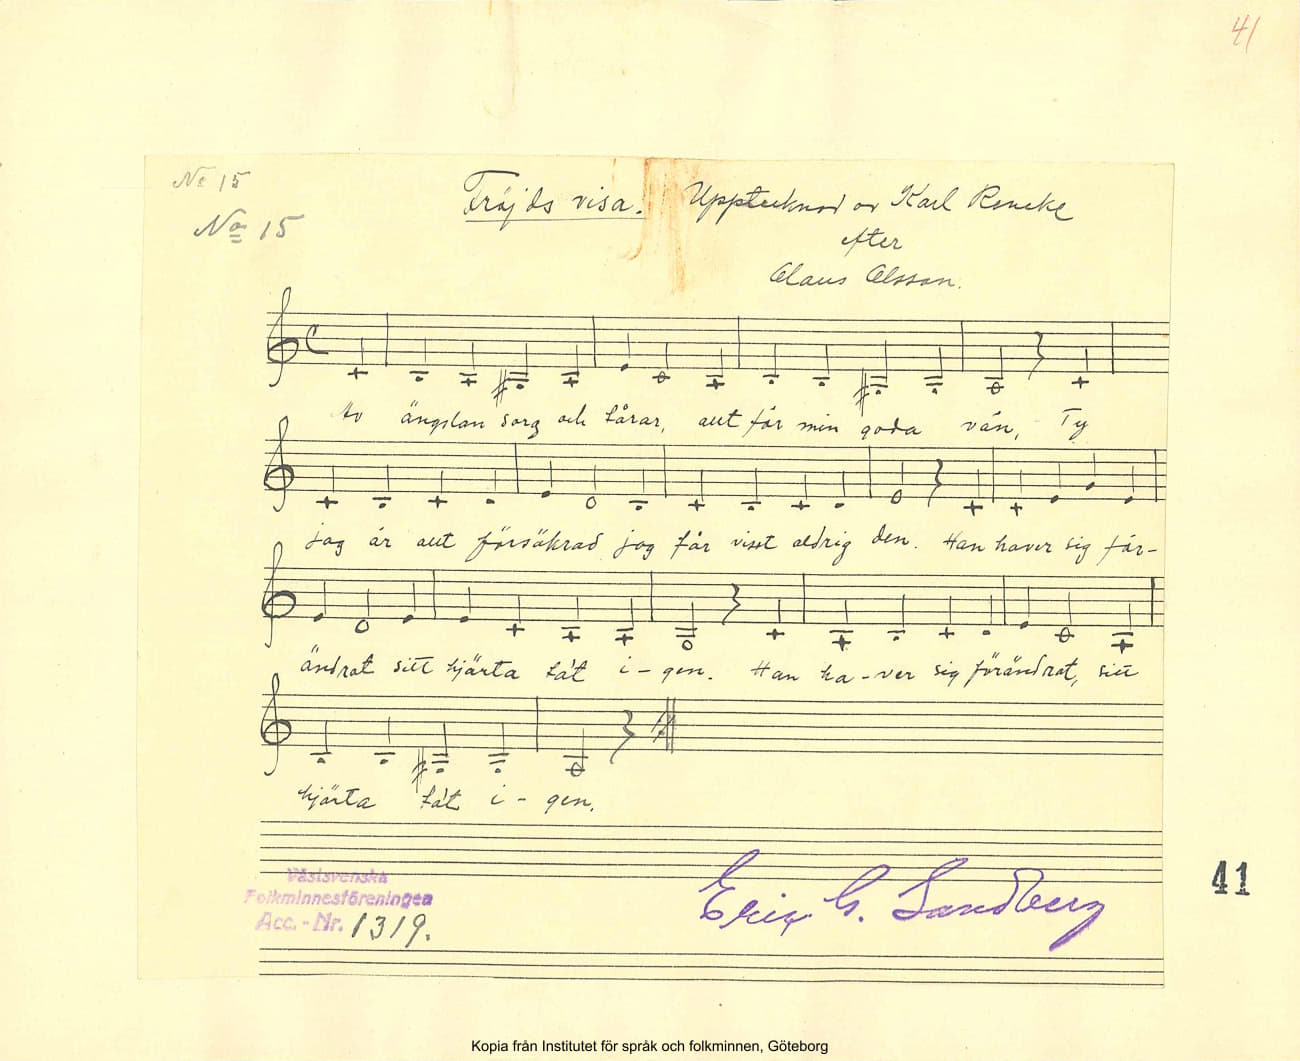 41
No 15
No 15
Fröjds visa. Upptecknad av Karl Reneke
efter
Claus Olsson.
Av ängslan sorg och tårar, allt för min goda vän, Ty
jag är allt försäkrad jag får visst aldrig den. Han haver sig för-
ändrat sitt hjärta tåt i-gen. Han ha-ver sig förändrat, sitt
hjärta tåt i-gen.
Västsvenska
Folkminnesföreningen
Acc.-Nr. 1319.
Eric G. Sandberg
41
Kopia från Institutet för språk och folkminnen, Göteborg